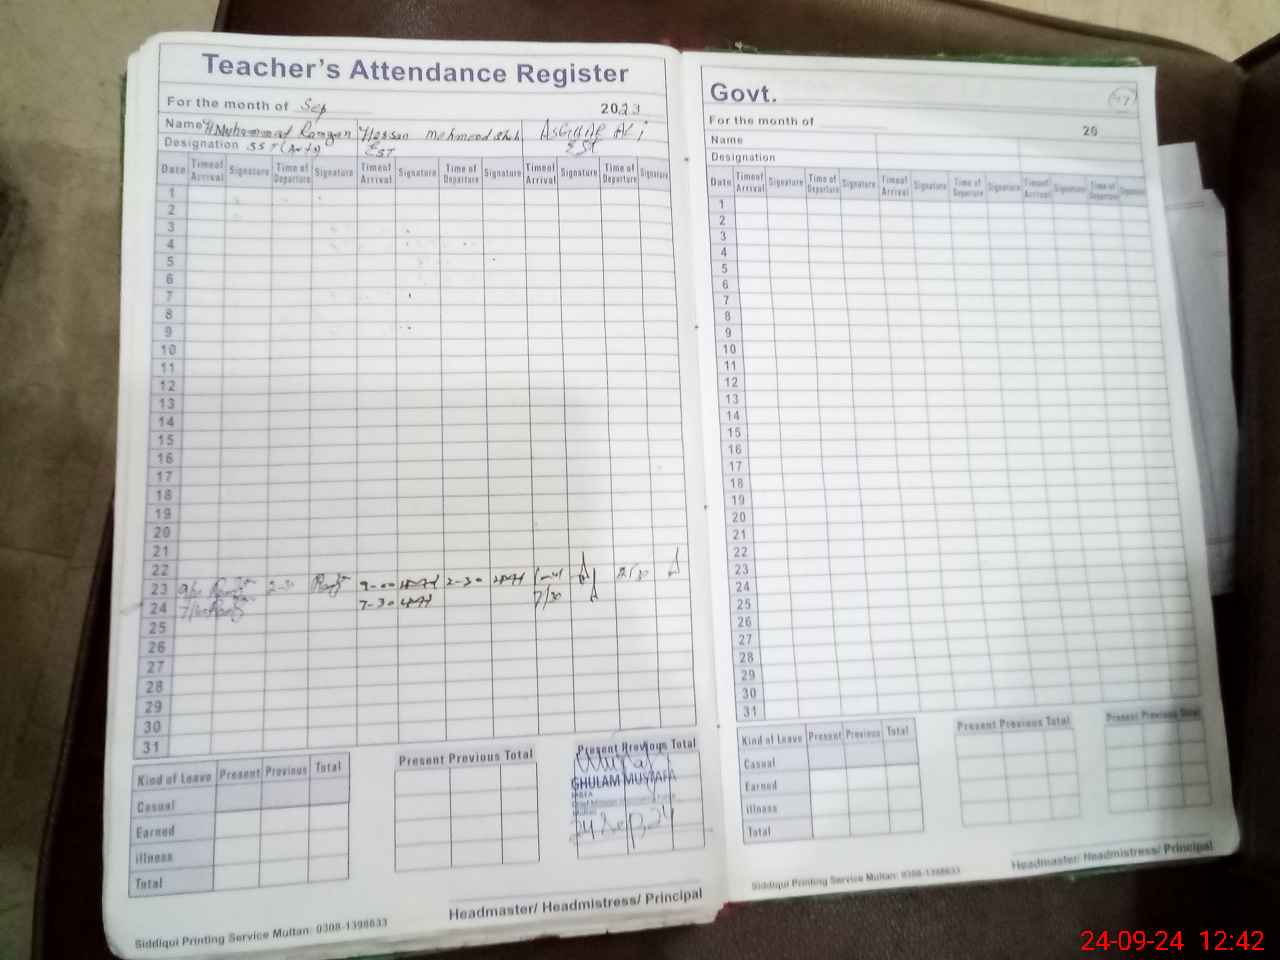 Teacher's Attendance Register
For the month of Sep 2023
Name Muhammad Ramzan Hassan Mehmood Shah ASGHAR ALi
Designation SST (Arts) EST EST
Date Time of Arrival Signature Time of Departure Signature Time of Arrival Signature Time of Departure Signature Time of Arrival Signature Time of Departure Signature
1
2
3
4
5
6
7
8
9
10
11
12
13
14
15
16
17
18
19
20
21
22
23 2-30 9-00 2-30
24 7-30 7/30
25
26
27
28
29
30
31
Kind of Leave Present Previous Total
Casual
Earned
illness
Total
Present Previous Total
Present Previous Total
GHULAM MUSTAFA
24 Sep, 24
Headmaster/ Headmistress/ Principal
Siddiqui Printing Service Multan: 0308-1398633
Govt.
For the month of 20
Name
Designation
Date Time of Arrival Signature Time of Departure Signature Time of Arrival Signature Time of Departure Signature Time of Arrival Signature Time of Departure Signature
1
2
3
4
5
6
7
8
9
10
11
12
13
14
15
16
17
18
19
20
21
22
23
24
25
26
27
28
29
30
31
Kind of Leave Present Previous Total
Casual
Earned
illness
Total
Present Previous Total
Present Previous Total
Headmaster/ Headmistress/ Principal
Siddiqui Printing Service Multan: 0308-1398633
24-09-24 12:42